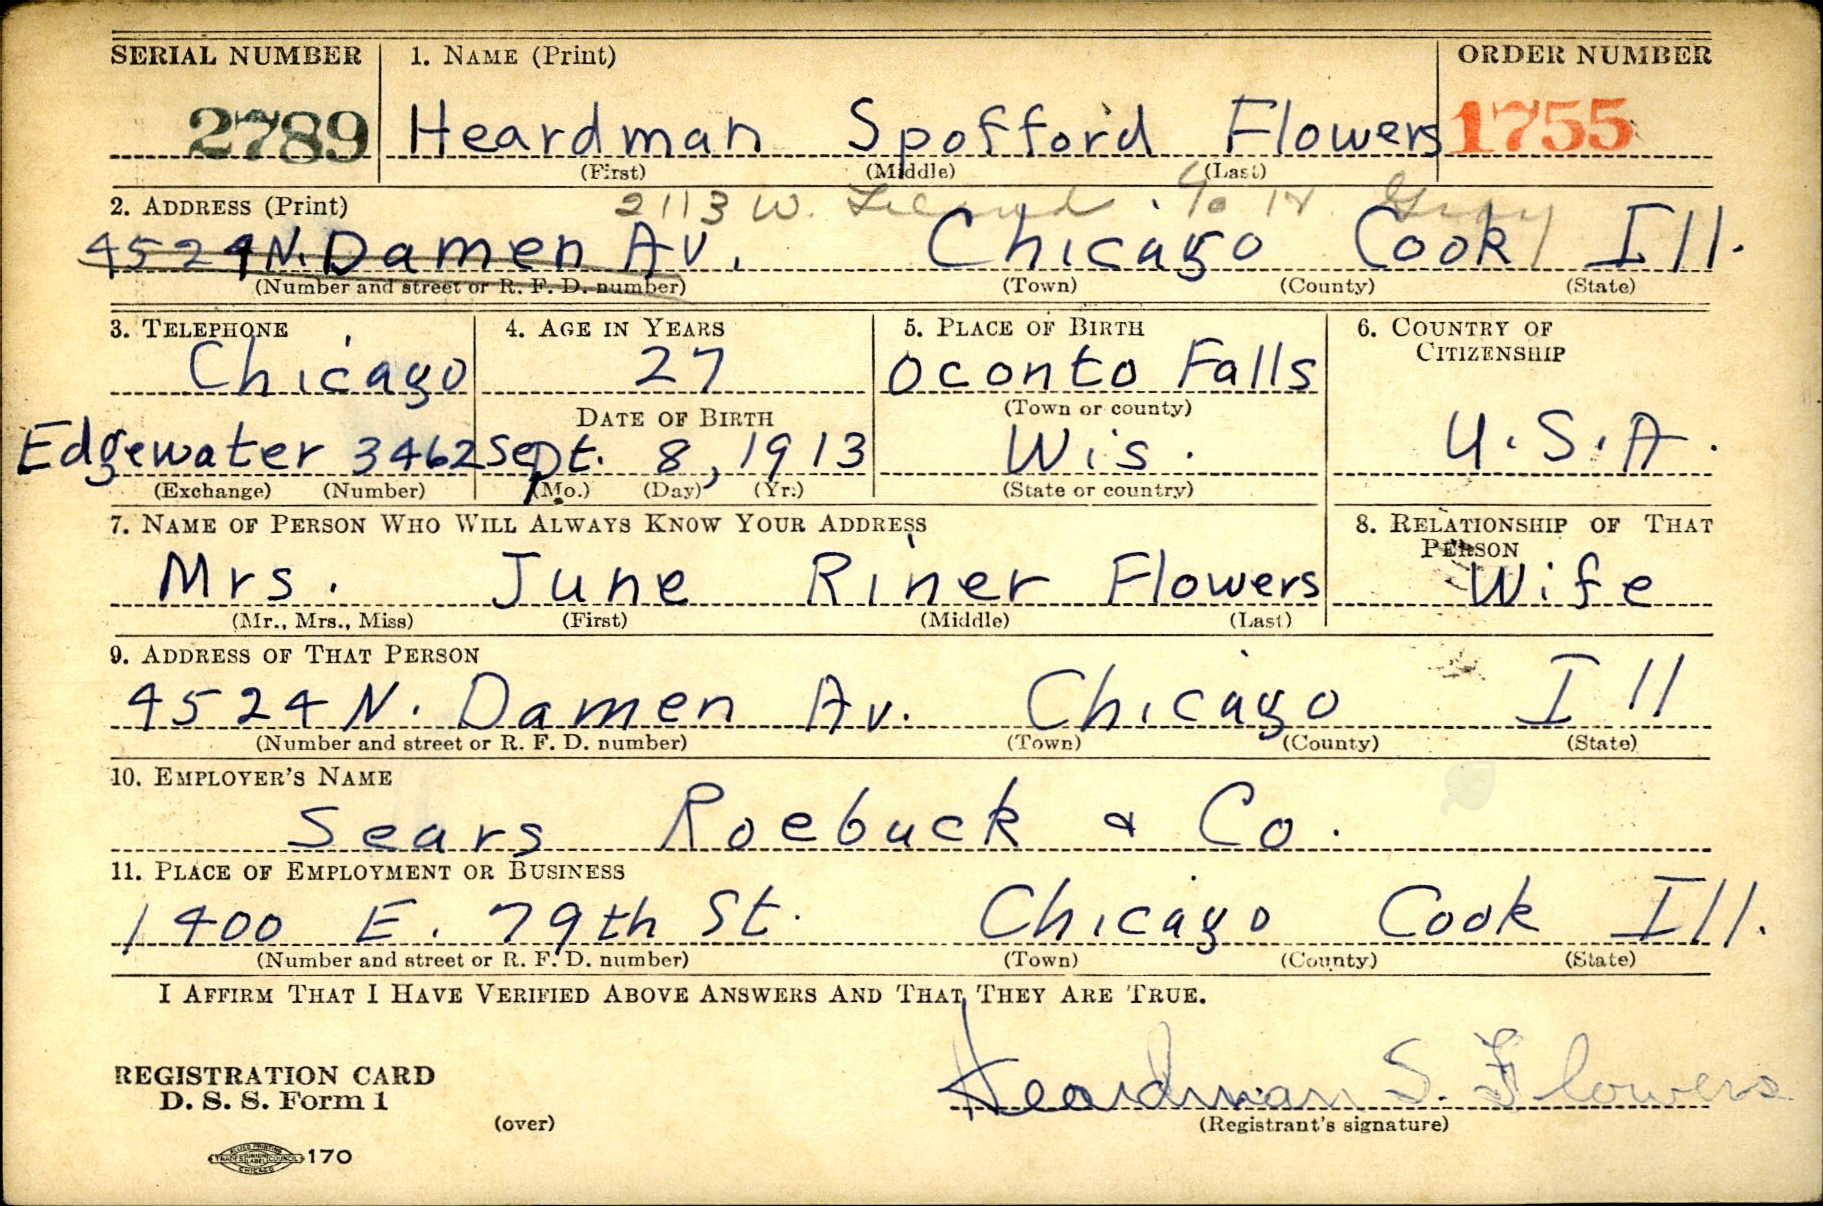 SERIAL NUMBER 1. NAME (Print) ORDER NUMBER
2789 Heardman Spofford Flowers 1755
(First) (Middle) (Last)
2. ADDRESS (Print) 2113 W.
4524 N. Damen Av. Chicago Cook Ill.
(Number and street or R. F. D. number) (Town) (County) (State)
3. TELEPHONE 4. AGE IN YEARS 5. PLACE OF BIRTH 6. COUNTRY OF
CITIZENSHIP
Chicago 27 Oconto Falls
DATE OF BIRTH (Town or county)
Edgewater 3462 Sept. 8, 1913 Wis. U.S.A.
(Exchange) (Number) (Mo.) (Day) (Yr.) (State or country)
7. NAME OF PERSON WHO WILL ALWAYS KNOW YOUR ADDRESS 8. RELATIONSHIP OF THAT
PERSON
Mrs. June Riner Flowers Wife
(Mr., Mrs., Miss) (First) (Middle) (Last)
9. ADDRESS OF THAT PERSON
4524 N. Damen Av. Chicago Ill
(Number and street or R. F. D. number) (Town) (County) (State)
10. EMPLOYER'S NAME
Sears Roebuck & Co.
11. PLACE OF EMPLOYMENT OR BUSINESS
1400 E. 79th St. Chicago Cook Ill.
(Number and street or R. F. D. number) (Town) (County) (State)
I AFFIRM THAT I HAVE VERIFIED ABOVE ANSWERS AND THAT THEY ARE TRUE.
REGISTRATION CARD
D. S. S. Form 1
Heardman S. Flowers
(over) (Registrant's signature)
170